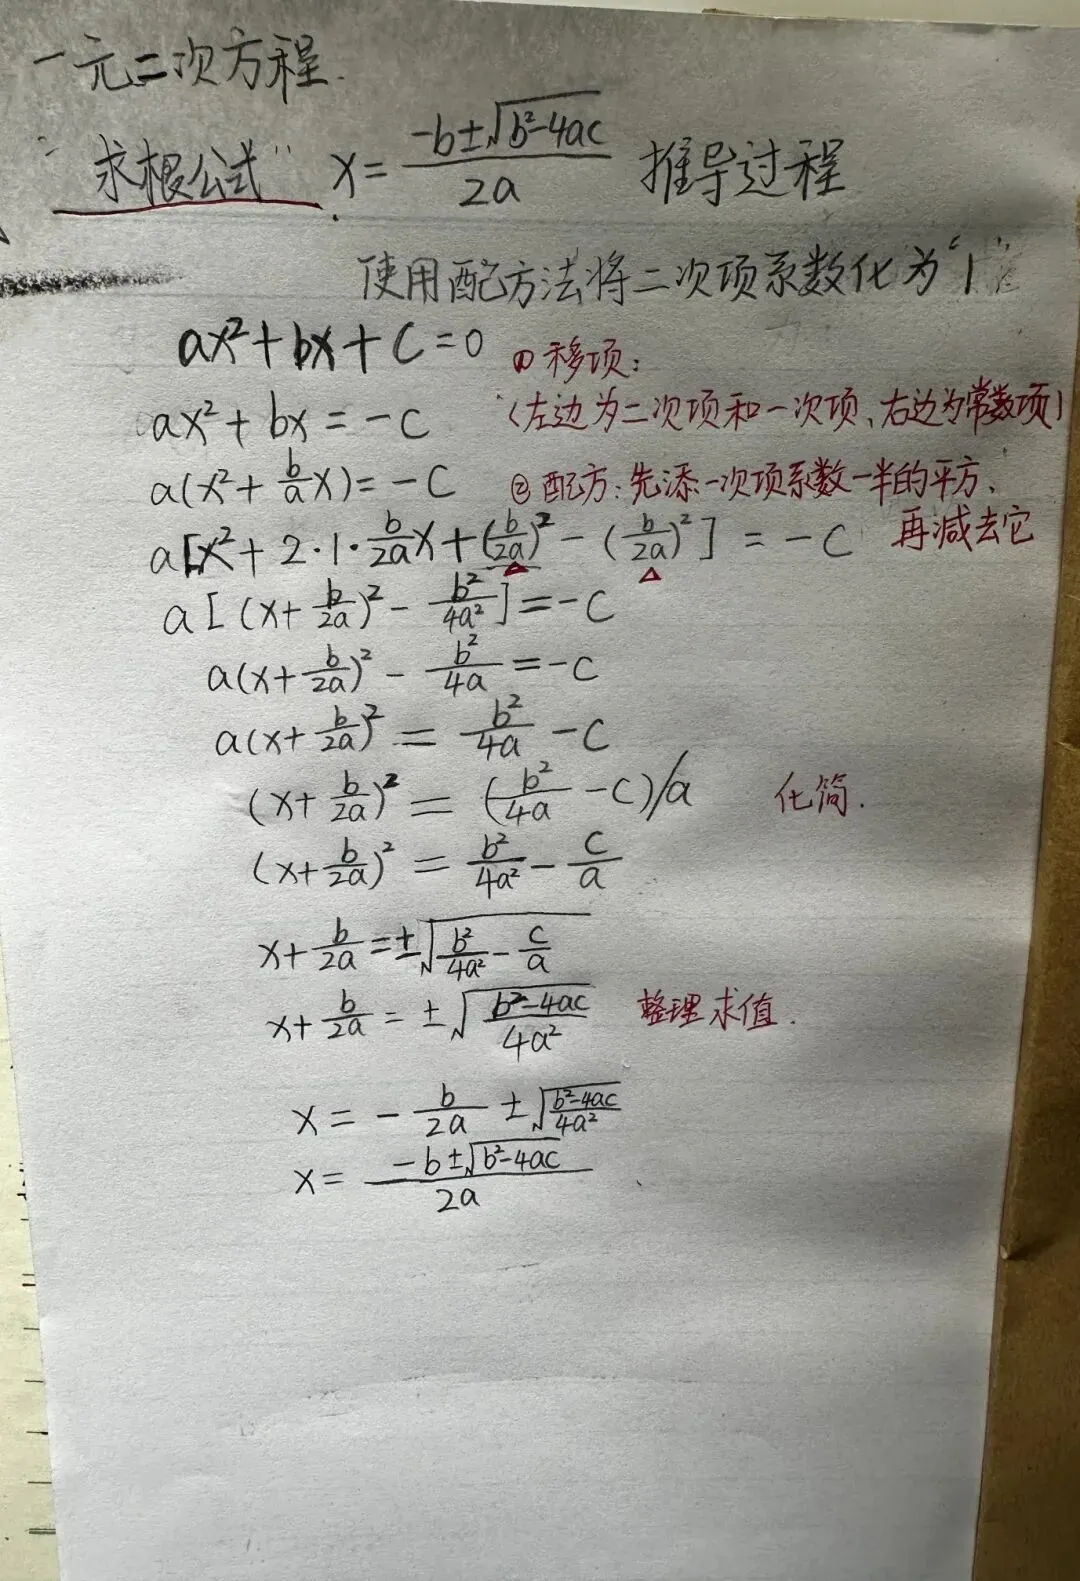 一元二次方程.
“求根公式” x = (-b±√(b²-4ac))/(2a) 推导过程
使用配方法将二次项系数化为“1”
ax²+bx+c=0 ① 移项:
ax²+bx=-c (左边为二次项和一次项、右边为常数项)
a(x²+(b/a)x)=-c ② 配方:先添一次项系数一半的平方、
a[x²+2·1·(b/2a)x+(b/2a)²-(b/2a)²]=-c 再减去它
a[(x+b/2a)²-b²/4a²]=-c
a(x+b/2a)²-b²/4a=-c
a(x+b/2a)²=b²/4a-c
(x+b/2a)²=(b²/4a-c)/a 化简.
(x+b/2a)²=b²/4a²-c/a
x+b/2a=±√(b²/4a²-c/a)
x+b/2a=±√((b²-4ac)/4a²) 整理求值.
x=-b/2a±√((b²-4ac)/4a²)
x=(-b±√(b²-4ac))/2a